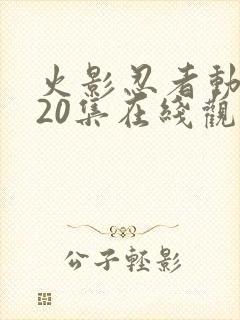 火影忍者動
20集在綫觀
公子輕影